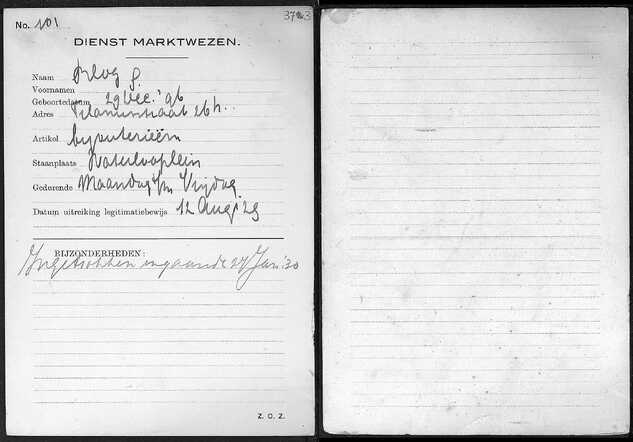 No. 101
DIENST MARKTWEZEN.
Naam Blog S.
Voornamen
Geboortedatum 29 Dec. '96
Adres 26 h.
Artikel byouterieën
Staanplaats Waterlooplein
Gedurende Maandag t/m Vrijdag
Datum uitreiking legitimatiebewijs 12 Aug '29
BIJZONDERHEDEN:
Ingetrokken ingaande 27 Jan. '30
Z. O. Z.